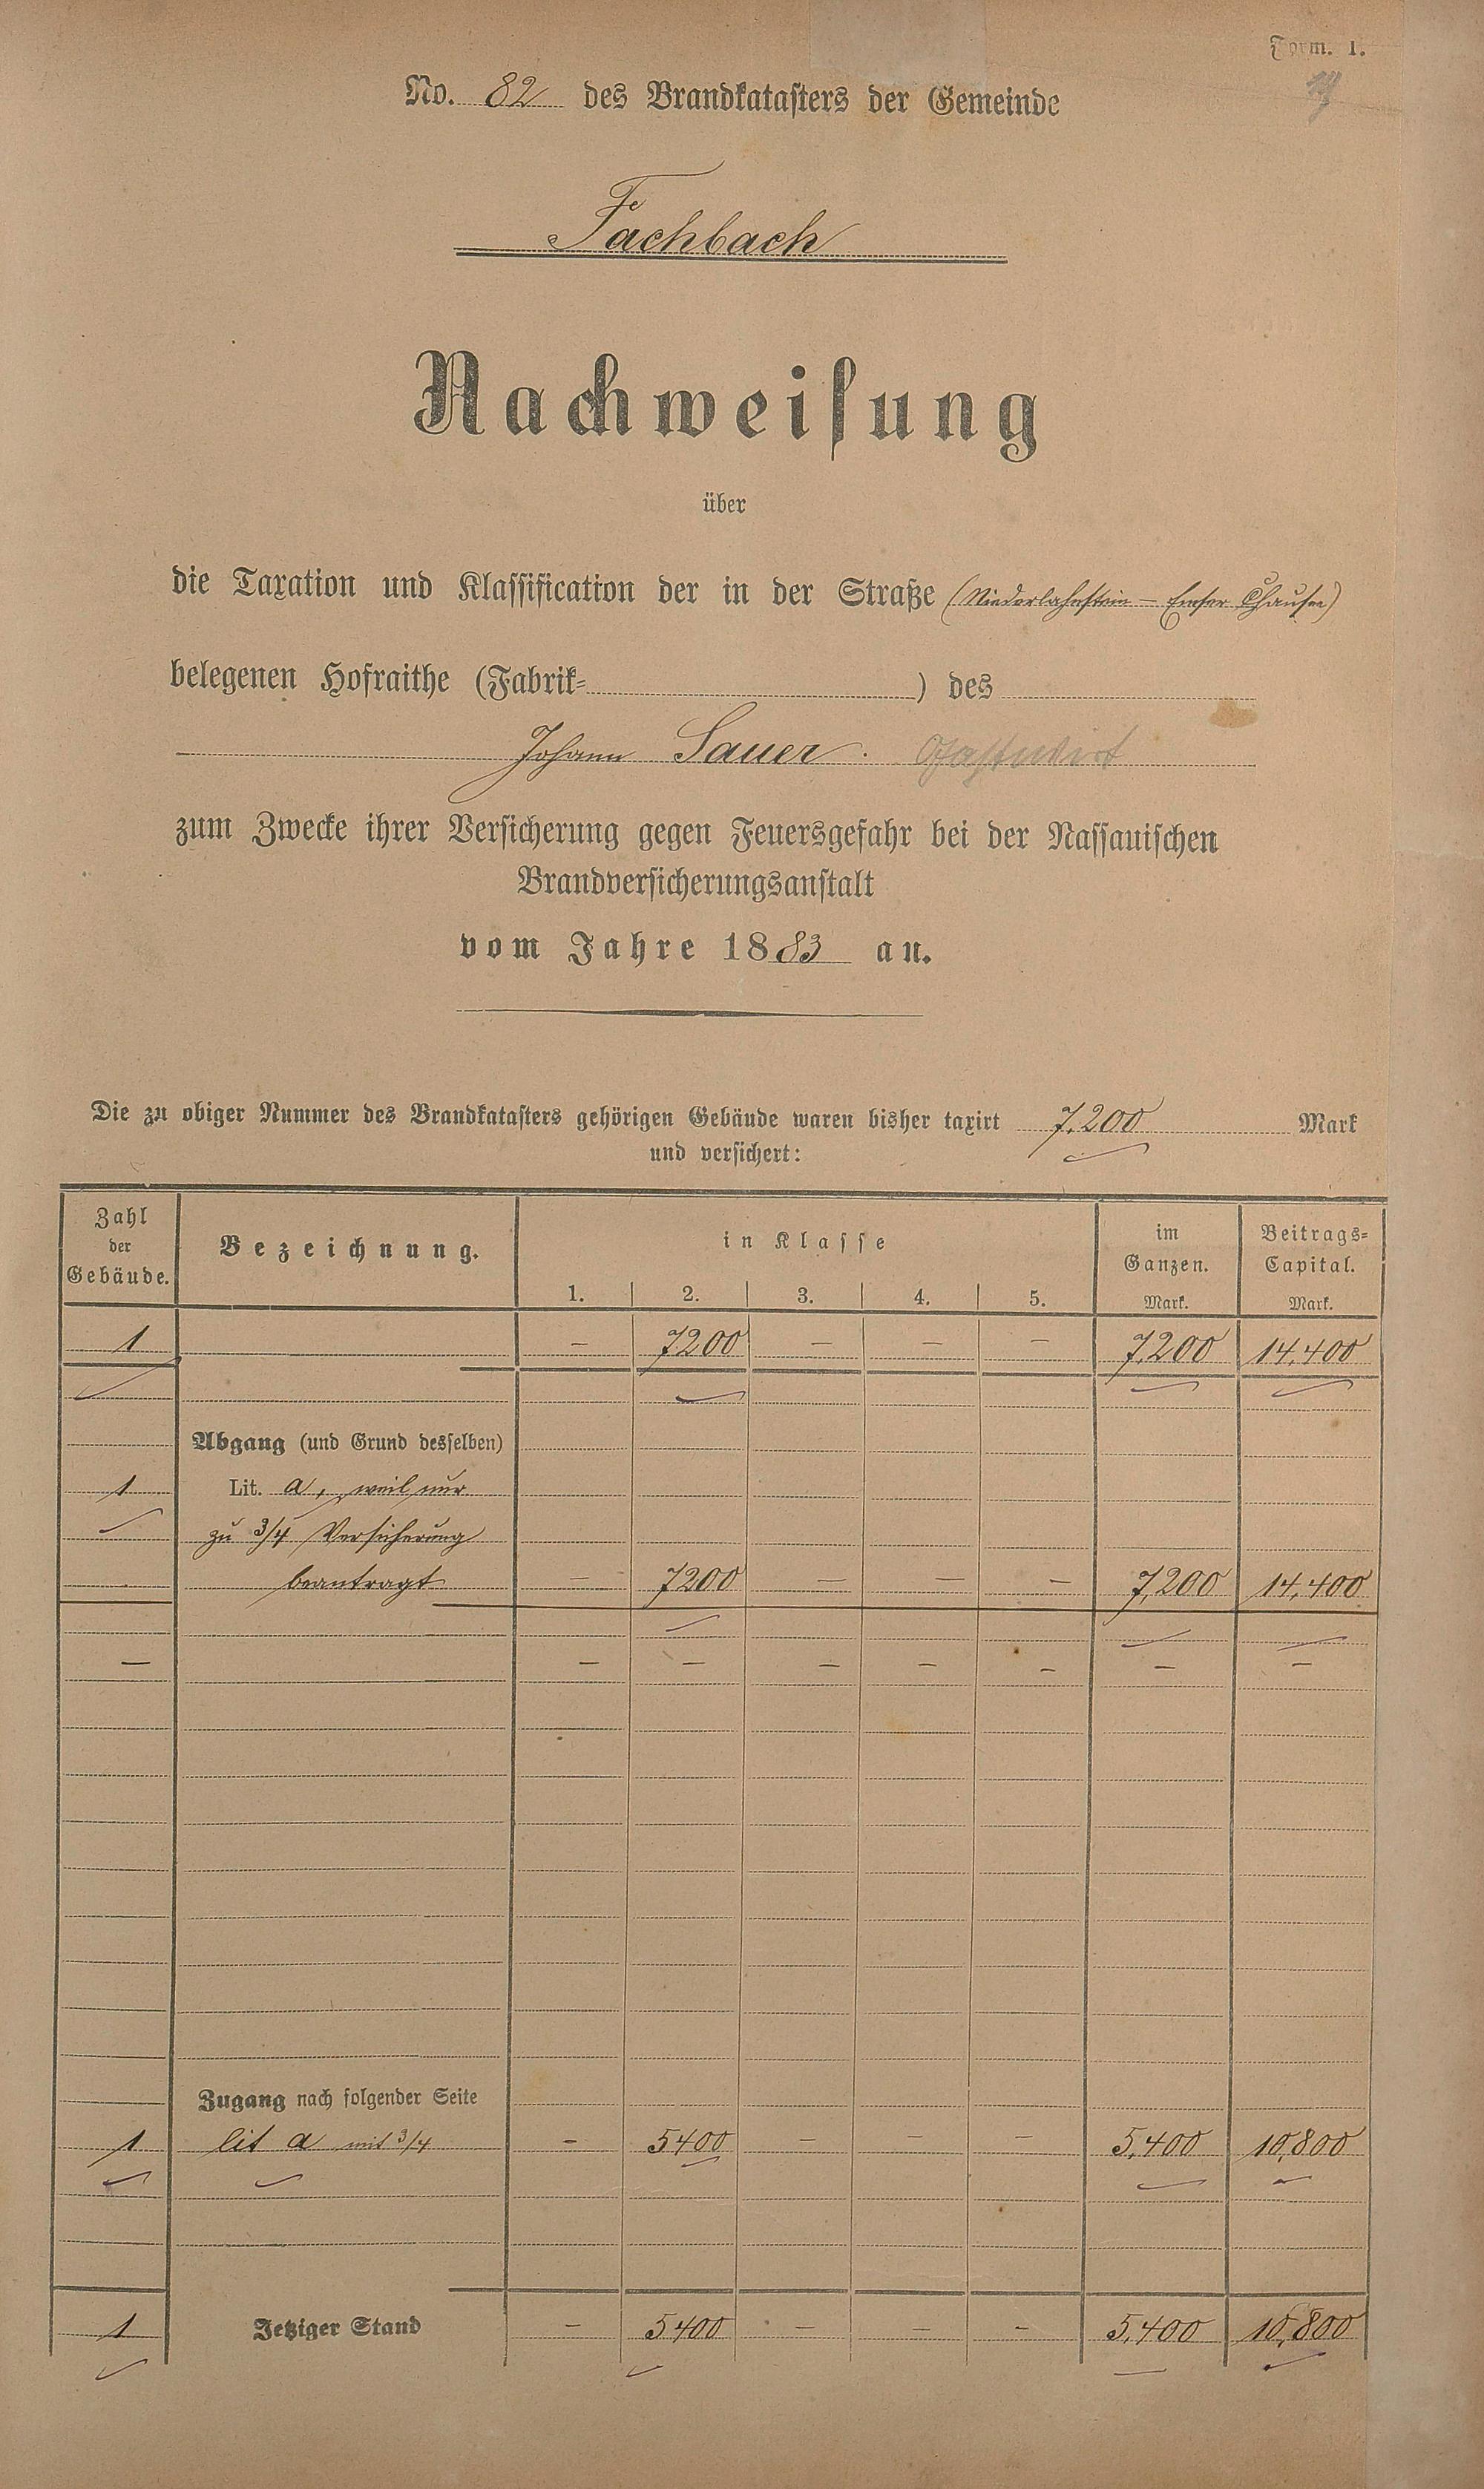 Form. 1.
No. 82 des Brandkatasters der Gemeinde
Fachbach
Nachweisung
über
die Taxation und Klassification der in der Straße (Niederlahnstein – Emser Chaussee)
belegenen Hofraithe (Fabrik= ) des
Johann Sauer. Gastwirt
zum Zwecke ihrer Versicherung gegen Feuersgefahr bei der Nassauischen
Brandversicherungsanstalt
vom Jahre 1883 an.
Die zu obiger Nummer des Brandkatasters gehörigen Gebäude waren bisher taxirt 7,200 Mark
und versichert:
Zahl der Gebäude. Bezeichnung. in Klasse im Ganzen. Beitrags= Capital.
1. 2. 3. 4. 5. Mark. Mark.
1 – 7200 – – – 7,200 14,400
Abgang (und Grund desselben)
1 Lit. a, weil nur
zu 3/4 Versicherung
beantragt – 7200 – – – 7,200 14,400
– – – – – – – –
Zugang nach folgender Seite
1 lit a mit 3/4 – 5400 – – – 5,400 10,800
1 Jetziger Stand – 5400 – – – 5,400 10,800